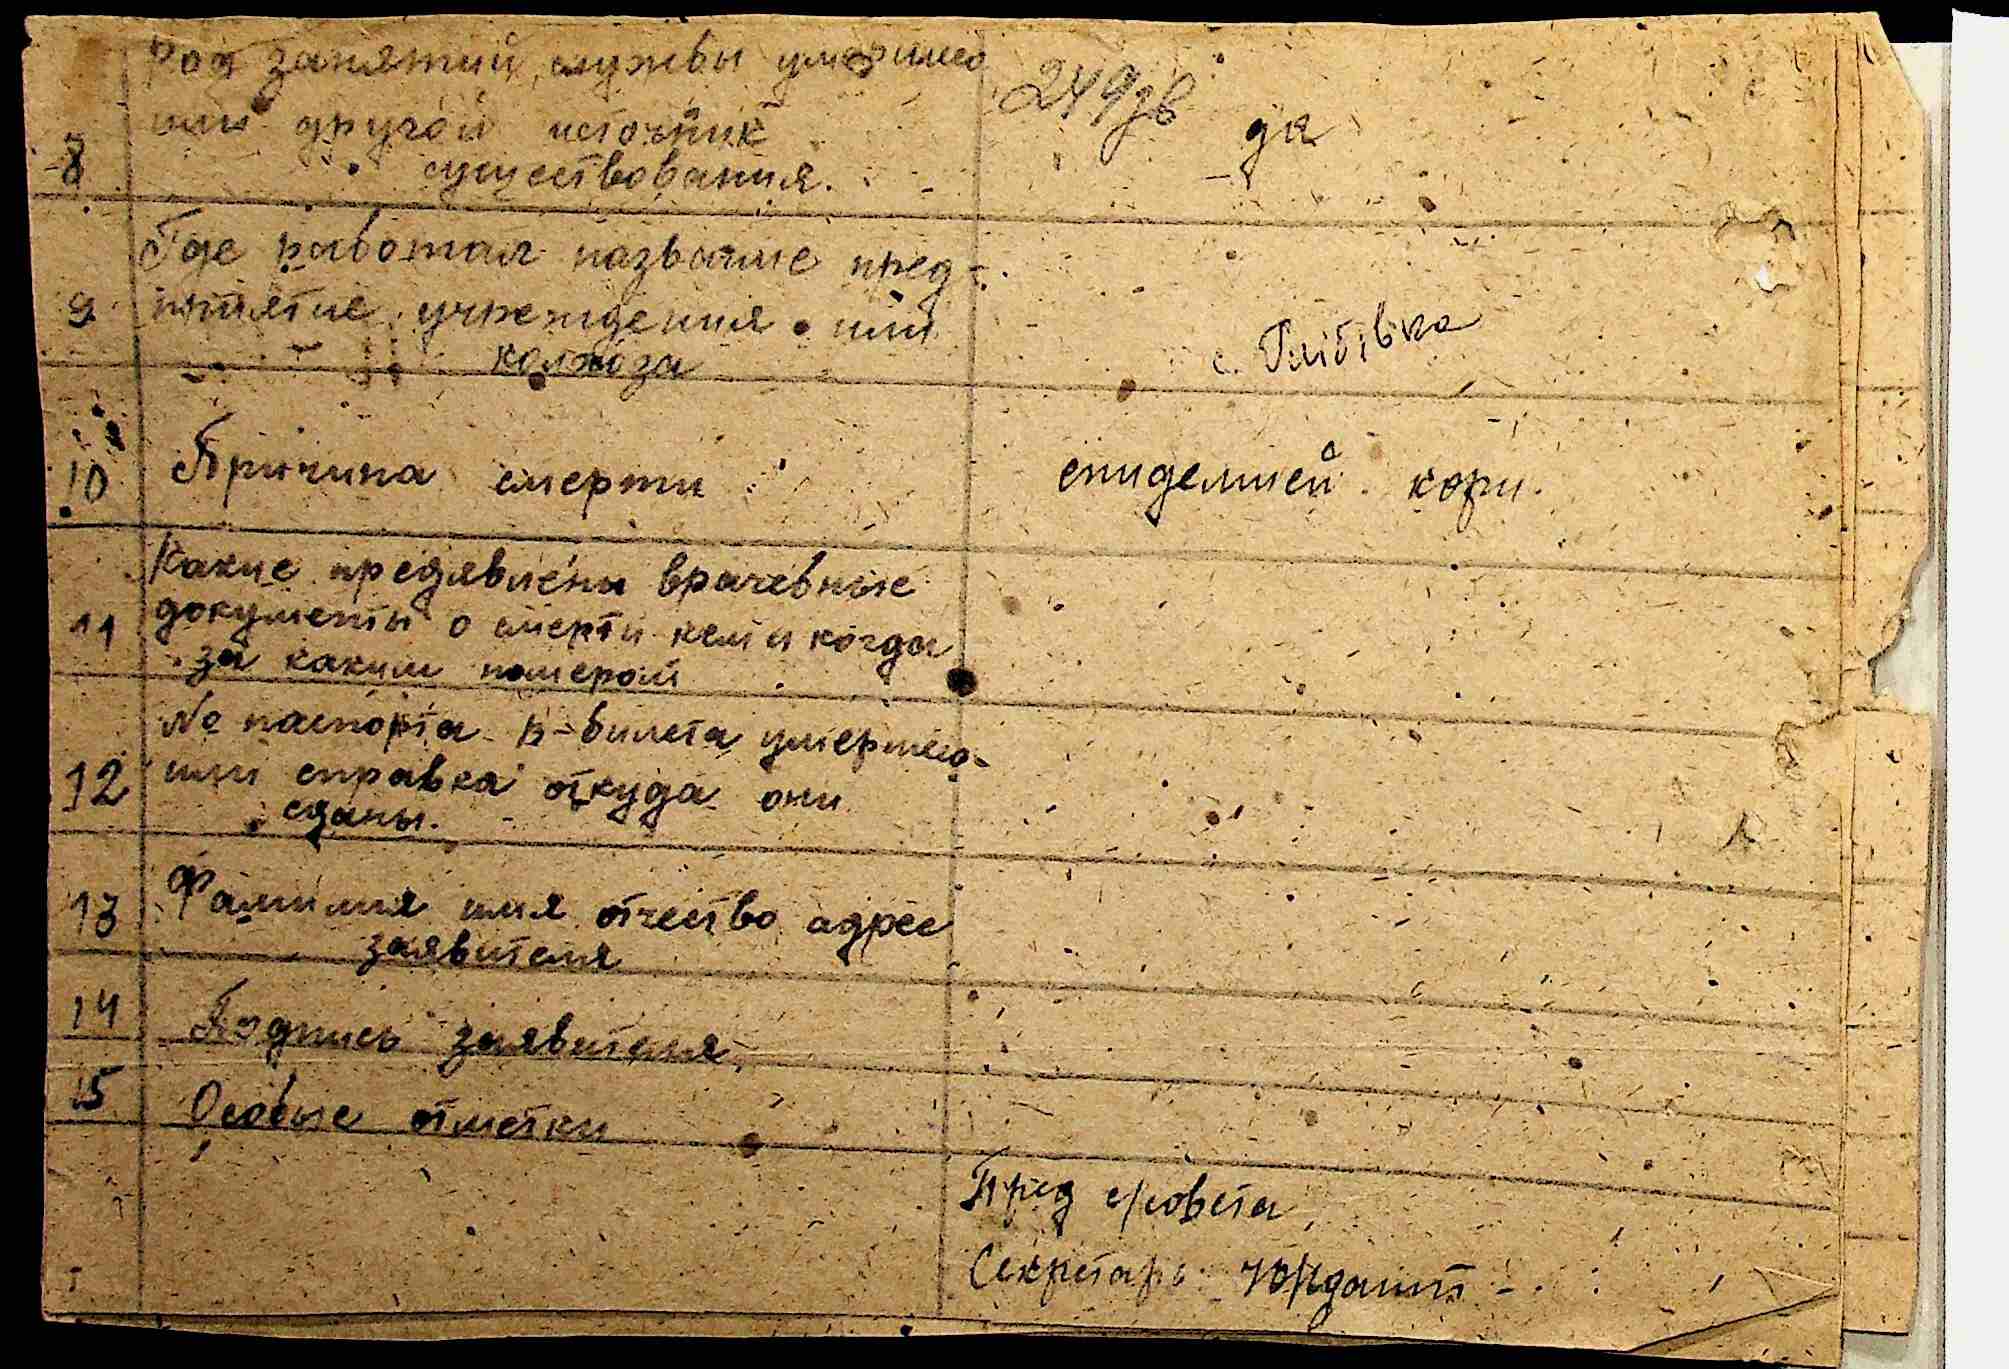 Род занятий, службы умершего
или другой источник
8 существования.
249зв
да
Где работал название пред-
9 приятие учреждения или
колхоза
с. Глібівка
10 Причина смерти
епидемией кори.
Какие предявлены врачевные
11 документы о смерти кем и когда
за каким номером
№ паспорта в-билета умершего
12 или справка откуда они
сданы.
13 Фамилия имя отчество адрес
заявителя
14 Подпись заявителя
15 Особые отметки
Пред с/совета
Секретарь